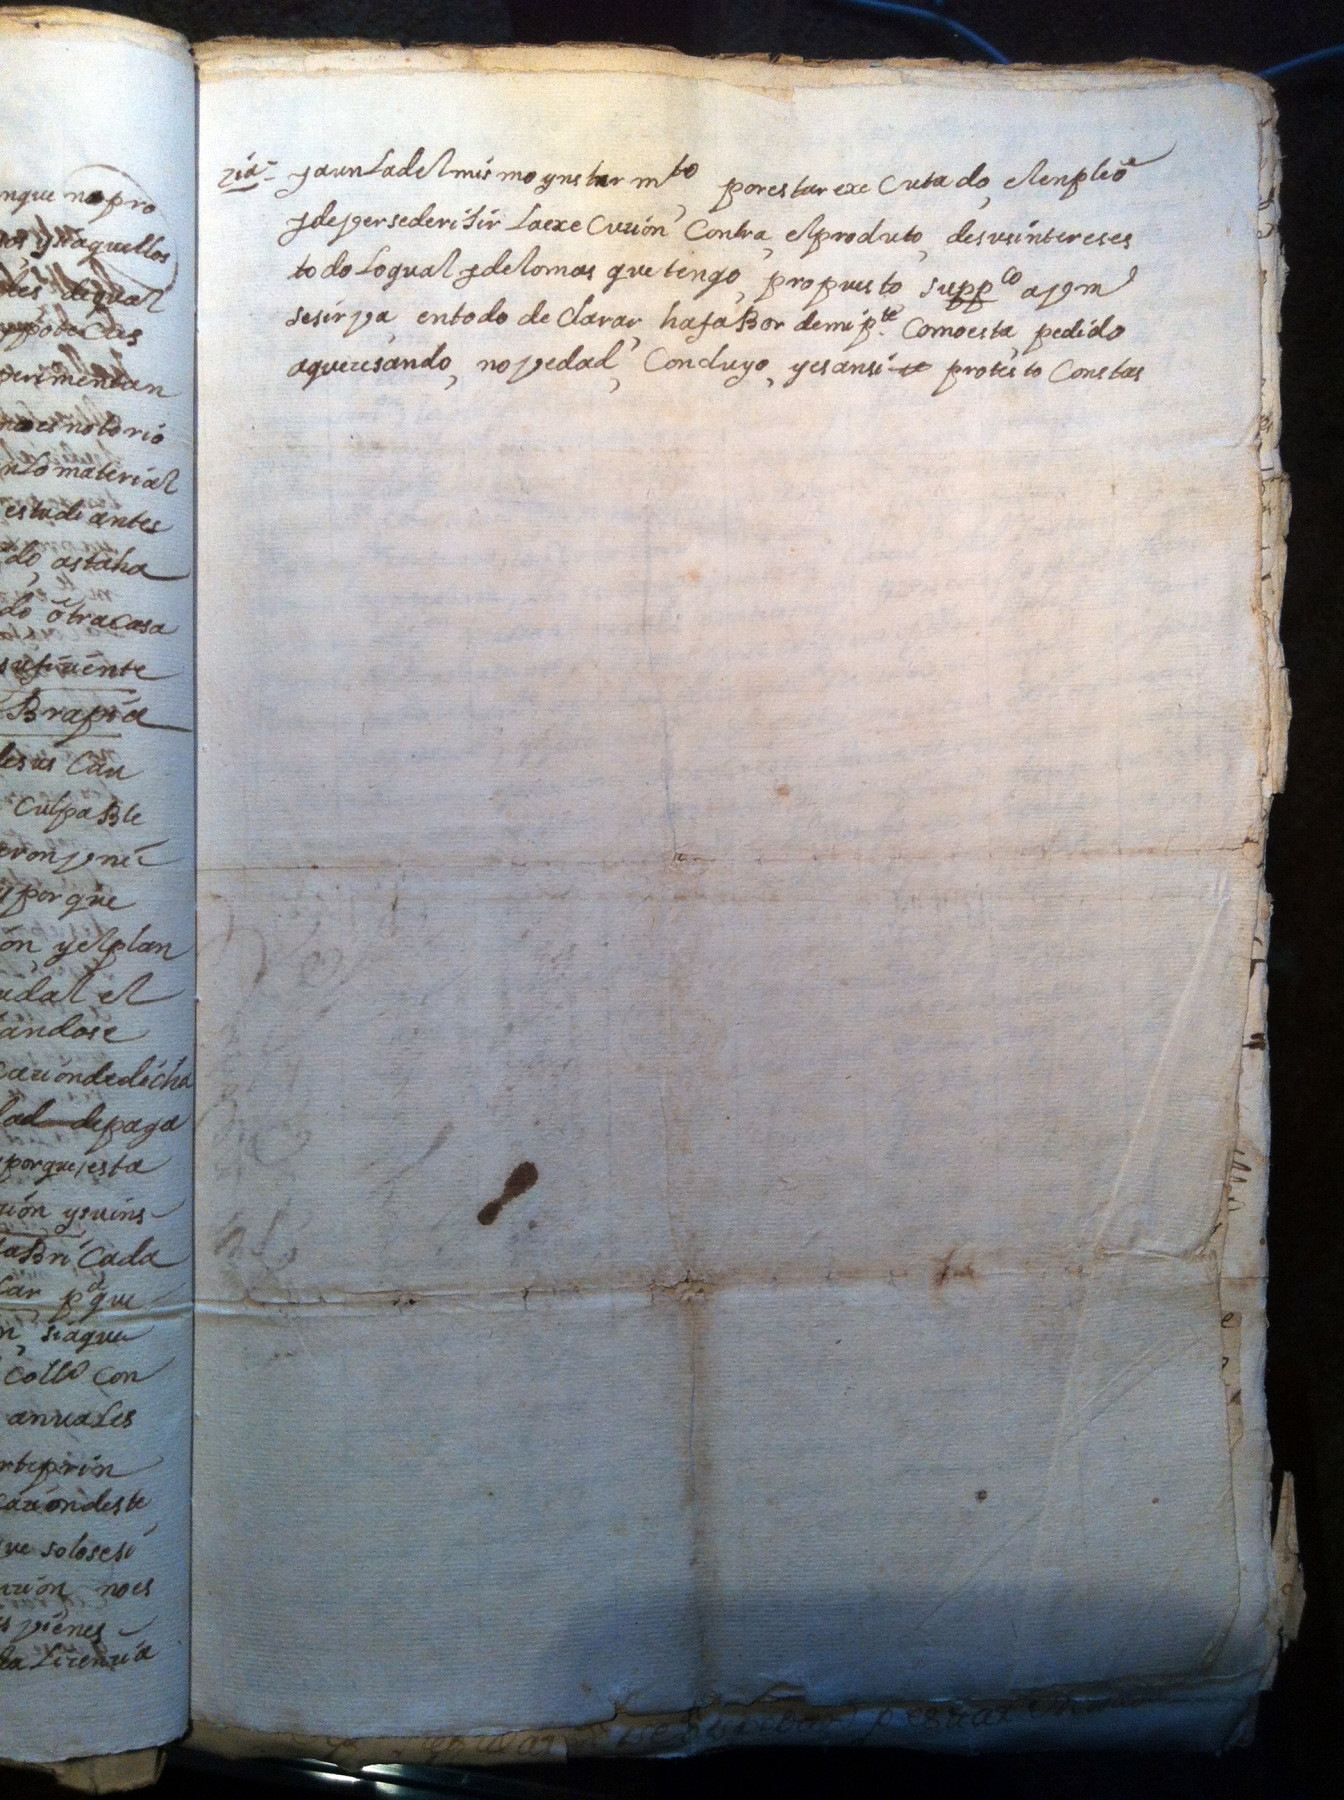 nque no pro
os, y si aquellos
les de qual
ypotecas
perimentan
no es notorio
n Lo material
estudiantes
do, asta ha
do otra casa
sufiziente
Brapia
de sus Cau
culpaBle
eron
y por que
on, y el plan
udal el
andose
cazion de dicha
dad de paga
porque, esta
zion y su ins-
faBricada
Car pª que
n, si aque
Collº con
anuales
rte prin
cazion deste
ue solo sesi
uzion no es
s vienes
La Lizenzia
zia- y aun La del mismo ynstrumto, por estar exeCutado, el enpleo
y de persederisir La exeCuzion Contra, el produto, de sus intereses
todo Lo qual y de lo mas que tengo, propuesto, suppco a vm
se sirva, en todo declarar, ha faBor de mi pte. Como esta, pedido
aquezesando, novedad, Concluyo, y es ansi protesto Costas